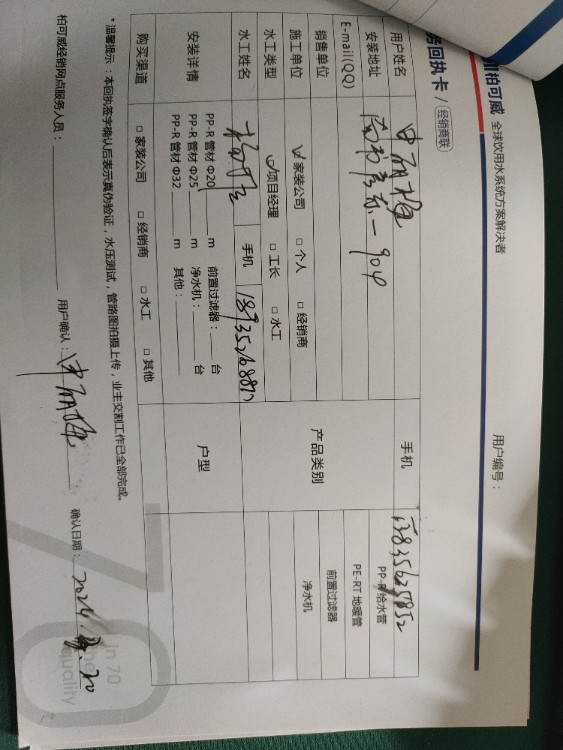 柏可威 全球饮用水系统方案解决者
用户编号：
务回执卡 / 经销商联
用户姓名 申丽梅 手机 13835625852
安装地址
E-mail(QQ)
销售单位 产品类别 PP-R 给水管
施工单位 ☑ 家装公司 □ 个人 □ 经销商 PE-RT 地暖管
水工类型 ☑ 项目经理 □ 工长 □ 水工 前置过滤器
水工姓名 手机 净水机
安装详情 PP-R 管材 Φ20 m 前置过滤器： 台 户型
PP-R 管材 Φ25 m 净水机： 台
PP-R 管材 Φ32 m 其他：
购买渠道 □ 家装公司 □ 经销商 □ 水工 □ 其他
*温馨提示：本回执签字确认后表示真伪验证，水压测试，管路图拍摄上传，业主交割工作已全部完成。
柏可威经销网点服务人员： 用户确认：申丽梅 确认日期：2024. .20
In 70
quality